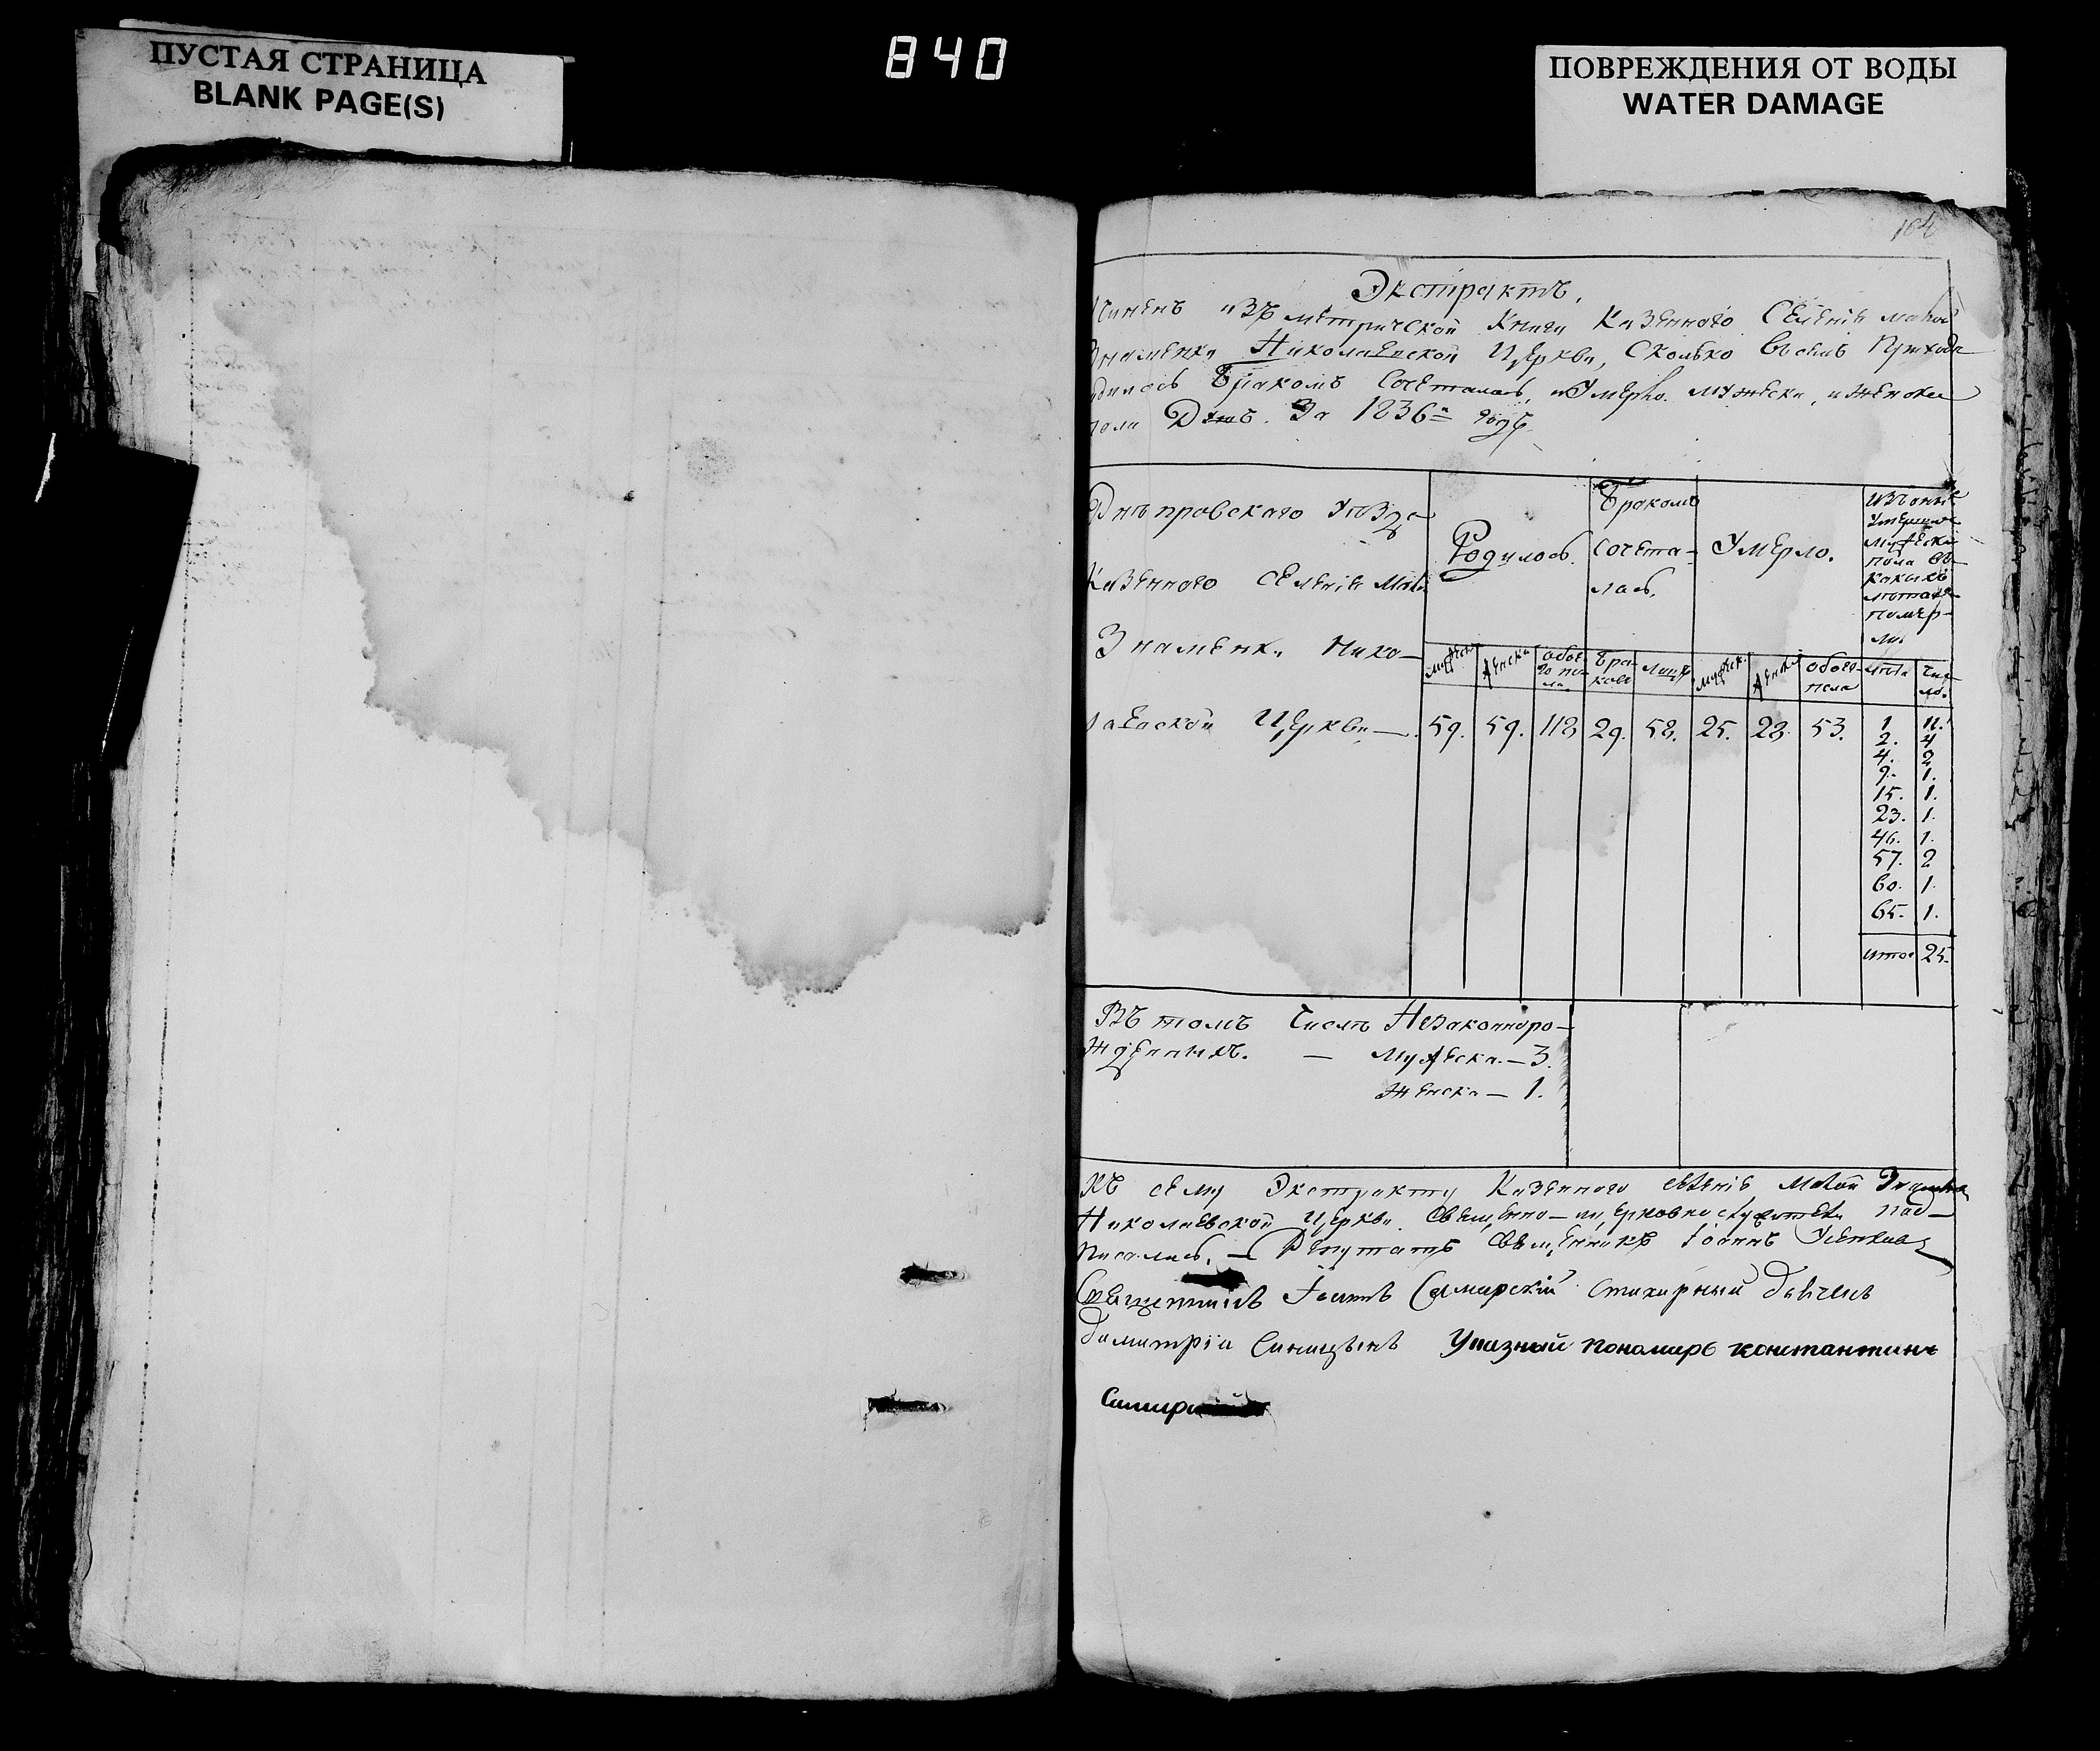 ПУСТАЯ СТРАНИЦА
BLANK PAGE(S)
840
ПОВРЕЖДЕНИЯ ОТ ВОДЫ
WATER DAMAGE
104
Экстрактъ,
чиненъ изъ метрической Книги Казенного Селенiя малой
Знаменки Николаевской Церкви, Сколько въ семъ Приходе
дилось Бракомъ Сочеталось, и Умерло. мужеска, и женска
пола Душъ. За 1836й годъ
Днепровского Уезда
Казенного Селенiя Мал.
Знаменки Нико-
лаевской Церкви —
Родилось.
Бракомъ
Сочета-
лось,
Умерло.
Изъ оныхъ
Умершихъ
мужеска
пола въ
какихъ
летахъ
помер-
ли.
мужеск.
женска
Обое-
го по-
ла
Бра-
ковъ
Лицъ
мужеск.
женска
Обоего
пола
лета
Чис-
ло.
59. 59. 118 29. 58. 25. 28. 53.
1 11.
2. 4
4. 2
9. 1.
15. 1.
23. 1.
46. 1.
57. 2
60. 1.
65. 1.
итого 25.
Въ томъ Числе Незаконноро-
жденныхъ. — мужеска. — 3.
Женска — 1.
Къ сему Экстракту Казенного селенiя Малой Знаменки
Николаевской Церкви Священно-церковнослужители под-
писались. — Депутатъ Священникъ Iоаннъ
Священникъ Iоаннъ Самарскiй Стихарный дьячекъ
Димитрiй Синицынъ Указный пономарь константинъ
Самарскiй